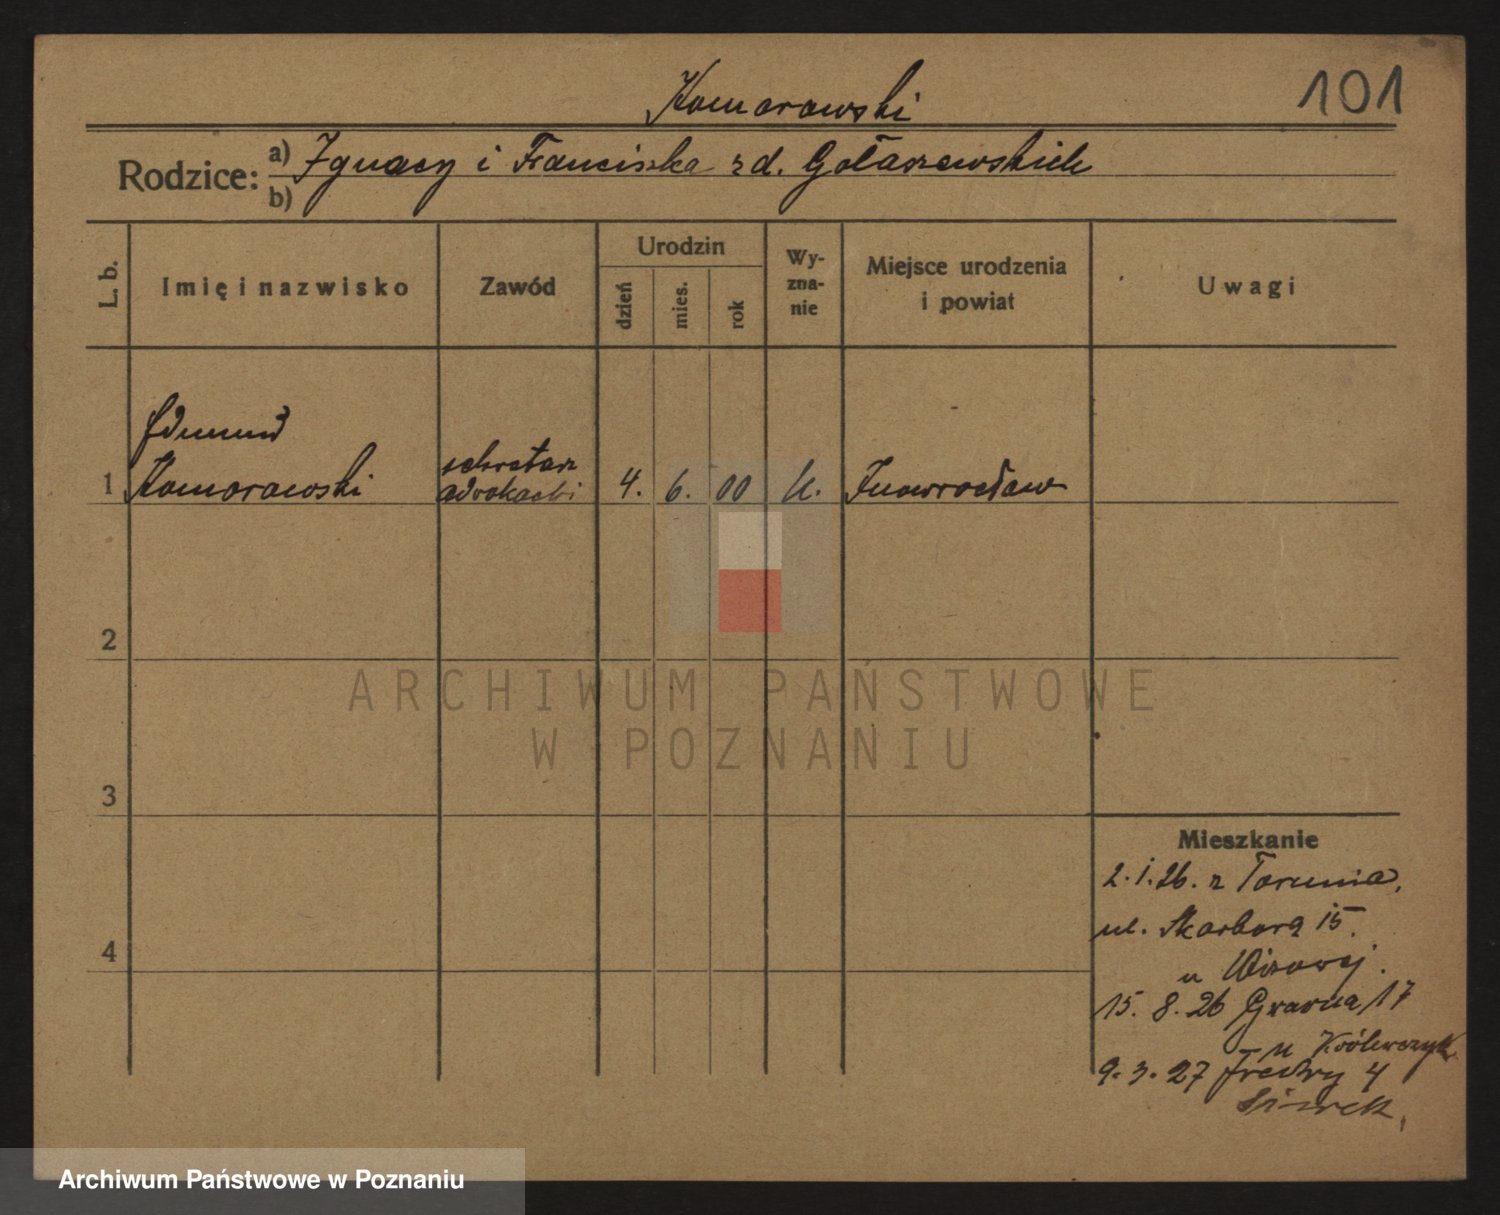 Komorowski
101
Rodzice: a) Ignacy i Franciszka z d. Gołaszewskich
b)
L. b.
Imię i nazwisko
Zawód
Urodzin
dzień
mies.
rok
Wy-
zna-
nie
Miejsce urodzenia
i powiat
Uwagi
Edmund
Komorowski
sekretarz
adwokacki
1
4. 6. 00
k.
Inowrocław
2
3
4
ARCHIWUM PAŃSTWOWE
W POZNANIU
Mieszkanie
2.1.26. z Torunia,
ul. Skarbową 15.
u
15. 8. 26 17
u Królewczyk
9.3.27 Fredry 4
Archiwum Państwowe w Poznaniu